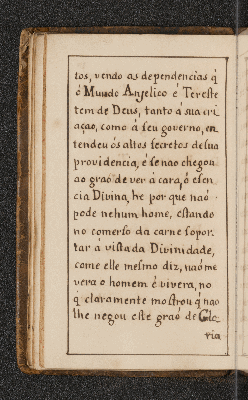 tos, vendo as dependencias q̃
ó Mundo Angelico é Terestre
tem de Deus, tanto á sua cri
açao, como á seu governo, en
tendeu ós altos secretos de sua
providencia, é se nao chegou
ao graõ de ver á cara, ó esen
cia Divina, he por que naõ
pode nehum home, estando
no comerso da carne sopor
tar á vista da Divinidade,
come elle mesmo diz, naõ me
vera o homem é vivera, no
q̃ claramente mostrou q̃ nao
lhe negou este graõ de Glo
ria